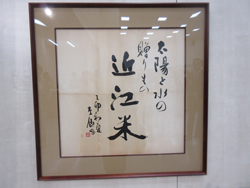 太陽と水の
贈りもの
近江米